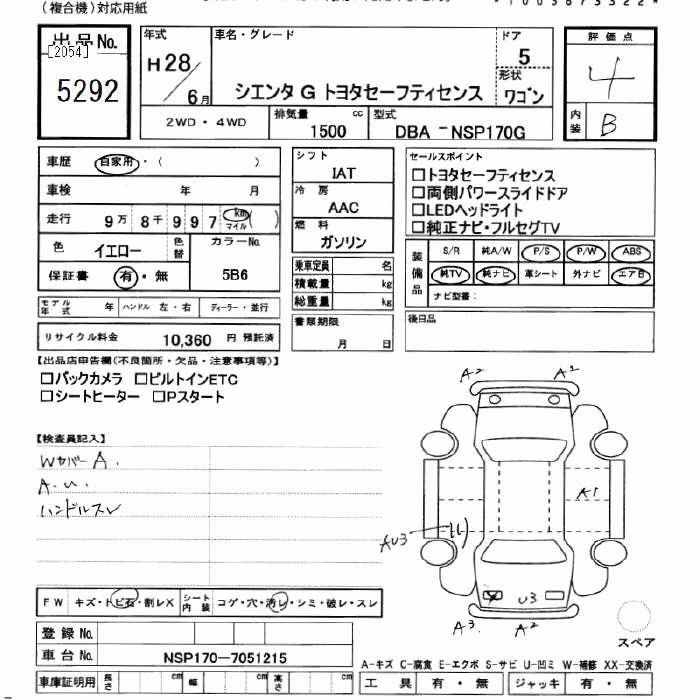 (複合機)対応用紙
出品No.
[2054]
5292
年式
H28/6月
車名・グレード
シエンタ G トヨタセーフティセンス
ドア
5
形状
ワゴン
評価点
4
内装
B
2WD・4WD
排気量
1500 cc
型式
DBA-NSP170G
車歴 自家用・( )
車検 年 月
走行 9万8千997 km マイル ( )
色 イエロー 色替
カラーNo.
5B6
保証書 有・無
モデル年式 年 ハンドル 左・右 ディーラー・並行
リサイクル料金 10,360 円 預託済
シフト
IAT
冷房
AAC
燃料
ガソリン
乗車定員 名
積載量 kg
総重量 kg
書類期限
月 日
セールスポイント
□トヨタセーフティセンス
□両側パワースライドドア
□LEDヘッドライト
□純正ナビ・フルセグTV
装備品
S/R 純A/W P/S P/W ABS
純TV 純ナビ 革シート 外ナビ エアB
ナビ型番:
後日品
【出品店申告欄(不良箇所・欠品・注意事項等)】
□バックカメラ □ビルトインETC
□シートヒーター □Pスタート
【検査員記入】
Wカバー A.
A.U.
ハンドルスレ
A2 A2
A1
AU3
U3
A3. A2
スペア
FW キズ・トビ石・割レX シート内装 コゲ・穴・汚レ・シミ・破レ・スレ
登録No.
車台No. NSP170-7051215
車庫証明用 長さ cm 幅 cm 高さ cm
A-キズ C-腐食 E-エクボ S-サビ U-凹ミ W-補修 XX-交換済
工具 有・無 ジャッキ 有・無